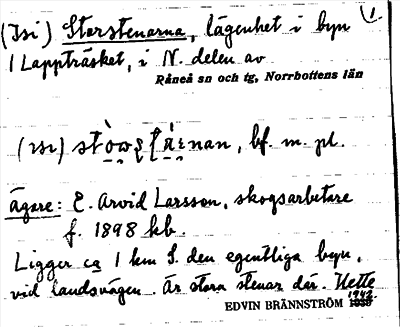 (Isi) Storstenarna, lägenhet i byn 1.
1 Lappträsket, i N. delen av
Råneå sn och tg, Norrbottens län
bf. m. pl.
ägare: E. Arvid Larsson, skogsarbetare
f. 1898 kb.
Ligger ca 1 km S. den egentliga byn,
vid landsvägen. Är stora stenar där. Hette
EDVIN BRÄNNSTRÖM 1942.